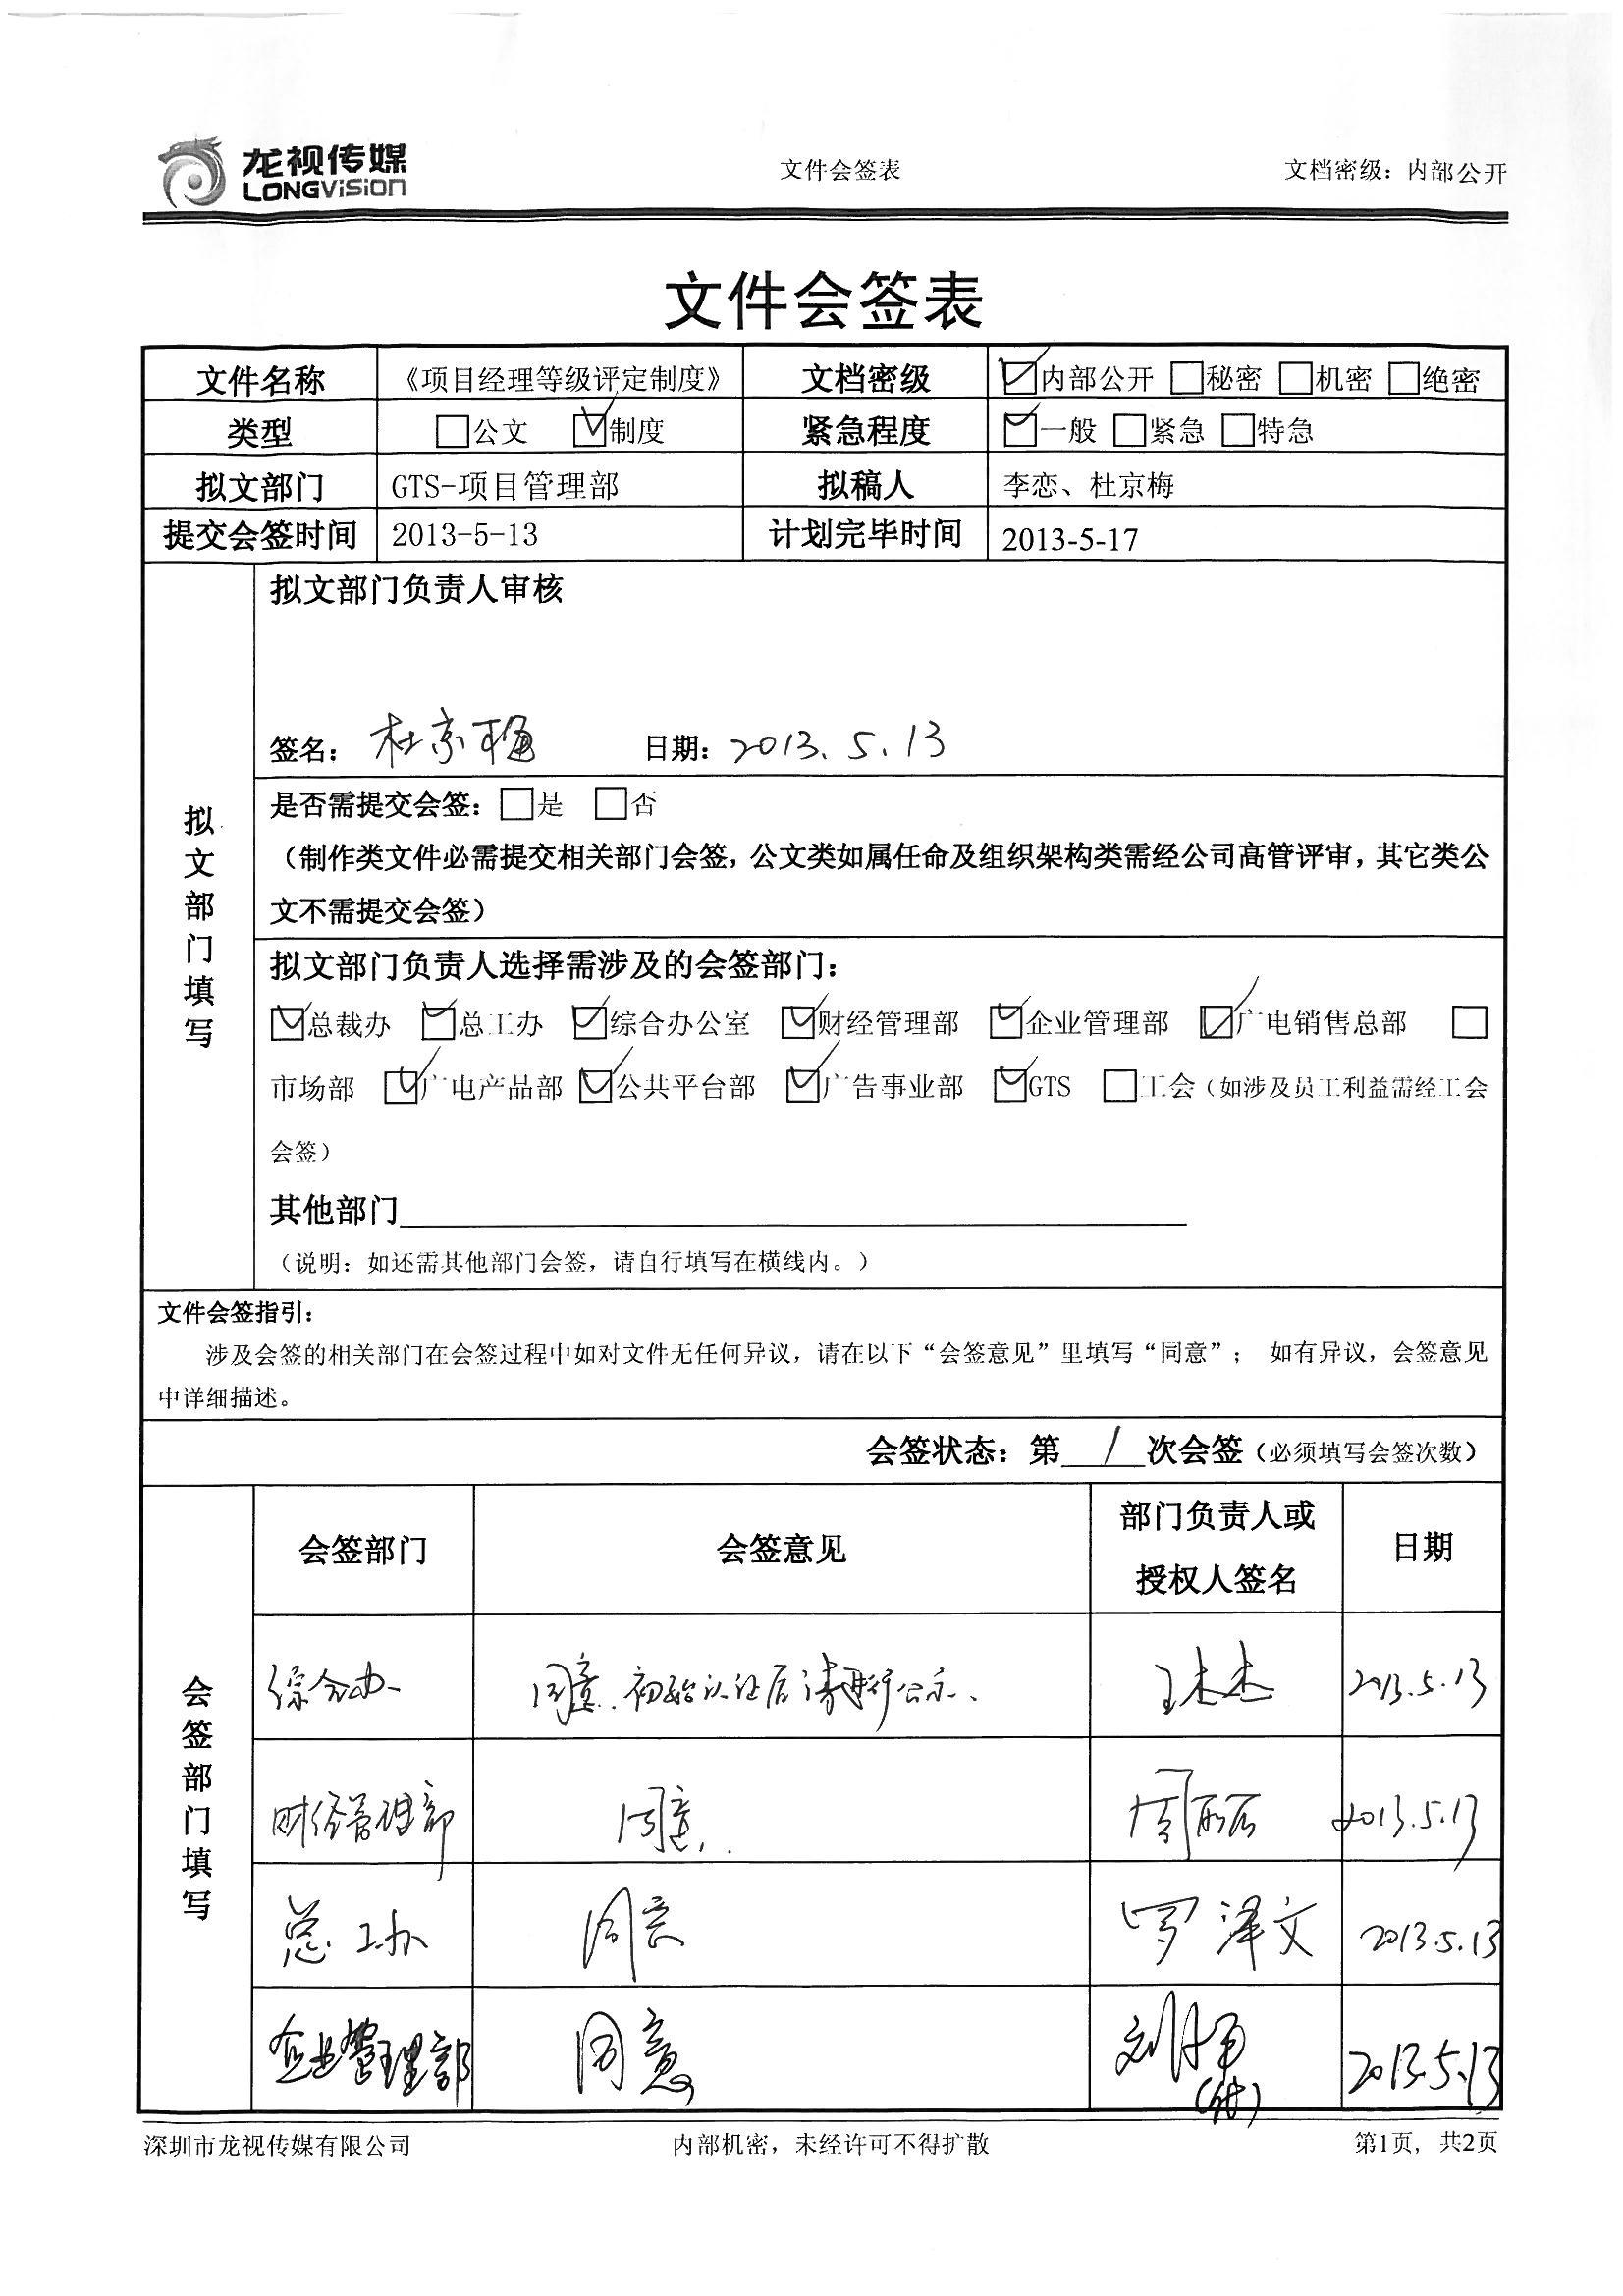 龙视传媒
LONGVISION
文件会签表
文档密级：内部公开
文件会签表
文件名称 《项目经理等级评定制度》 文档密级 ☑内部公开 □秘密 □机密 □绝密
类型 □公文 ☑制度 紧急程度 ☑一般 □紧急 □特急
拟文部门 GTS-项目管理部 拟稿人 李恋、杜京梅
提交会签时间 2013-5-13 计划完毕时间 2013-5-17
拟文部门填写
拟文部门负责人审核
签名：杜京梅 日期：2013.5.13
是否需提交会签：□是 □否
（制作类文件必需提交相关部门会签，公文类如属任命及组织架构类需经公司高管评审，其它类公
文不需提交会签）
拟文部门负责人选择需涉及的会签部门：
☑总裁办 ☑总工办 ☑综合办公室 ☑财经管理部 ☑企业管理部 ☑广电销售总部 □
市场部 ☑广电产品部 ☑公共平台部 ☑广告事业部 ☑GTS □工会（如涉及员工利益需经工会
会签）
其他部门
（说明：如还需其他部门会签，请自行填写在横线内。）
文件会签指引：
涉及会签的相关部门在会签过程中如对文件无任何异议，请在以下“会签意见”里填写“同意”； 如有异议，会签意见
中详细描述。
会签状态：第 1 次会签（必须填写会签次数）
会签部门填写
会签部门 会签意见 部门负责人或 日期
授权人签名
综合办 同意.初始认证后请进行公示. 2013.5.13
财经管理部 同意. 2013.5.13
总工办 同意 罗泽文 2013.5.13
企业管理部 同意 2013.5.13
深圳市龙视传媒有限公司 内部机密，未经许可不得扩散 第1页，共2页